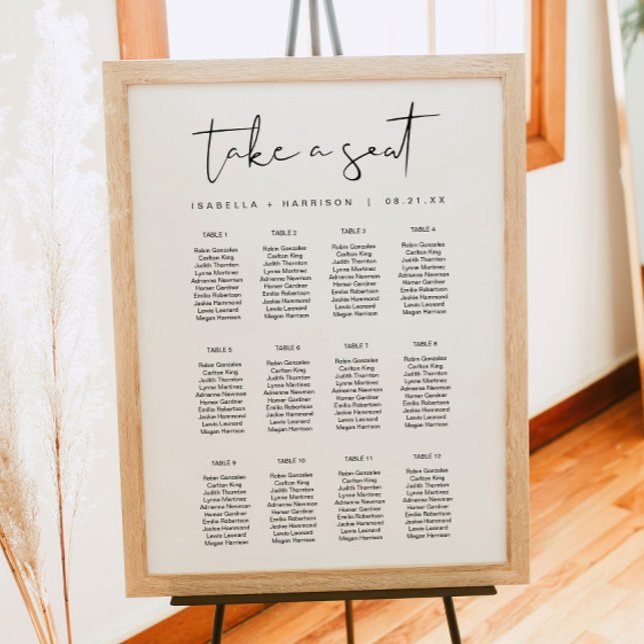 take a seat
ISABELLA + HARRISON | 08.21.XX
TABLE 1
Robin Gonzales
Carlton King
Judith Thornton
Lynne Martinez
Adrienne Newman
Homer Gardner
Emilio Robertson
Jackie Hammond
Lewis Leonard
Megan Harrison
TABLE 2
Robin Gonzales
Carlton King
Judith Thornton
Lynne Martinez
Adrienne Newman
Homer Gardner
Emilio Robertson
Jackie Hammond
Lewis Leonard
Megan Harrison
TABLE 3
Robin Gonzales
Carlton King
Judith Thornton
Lynne Martinez
Adrienne Newman
Homer Gardner
Emilio Robertson
Jackie Hammond
Lewis Leonard
Megan Harrison
TABLE 4
Robin Gonzales
Carlton King
Judith Thornton
Lynne Martinez
Adrienne Newman
Homer Gardner
Emilio Robertson
Jackie Hammond
Lewis Leonard
Megan Harrison
TABLE 5
Robin Gonzales
Carlton King
Judith Thornton
Lynne Martinez
Adrienne Newman
Homer Gardner
Emilio Robertson
Jackie Hammond
Lewis Leonard
Megan Harrison
TABLE 6
Robin Gonzales
Carlton King
Judith Thornton
Lynne Martinez
Adrienne Newman
Homer Gardner
Emilio Robertson
Jackie Hammond
Lewis Leonard
Megan Harrison
TABLE 7
Robin Gonzales
Carlton King
Judith Thornton
Lynne Martinez
Adrienne Newman
Homer Gardner
Emilio Robertson
Jackie Hammond
Lewis Leonard
Megan Harrison
TABLE 8
Robin Gonzales
Carlton King
Judith Thornton
Lynne Martinez
Adrienne Newman
Homer Gardner
Emilio Robertson
Jackie Hammond
Lewis Leonard
Megan Harrison
TABLE 9
Robin Gonzales
Carlton King
Judith Thornton
Lynne Martinez
Adrienne Newman
Homer Gardner
Emilio Robertson
Jackie Hammond
Lewis Leonard
Megan Harrison
TABLE 10
Robin Gonzales
Carlton King
Judith Thornton
Lynne Martinez
Adrienne Newman
Homer Gardner
Emilio Robertson
Jackie Hammond
Lewis Leonard
Megan Harrison
TABLE 11
Robin Gonzales
Carlton King
Judith Thornton
Lynne Martinez
Adrienne Newman
Homer Gardner
Emilio Robertson
Jackie Hammond
Lewis Leonard
Megan Harrison
TABLE 12
Robin Gonzales
Carlton King
Judith Thornton
Lynne Martinez
Adrienne Newman
Homer Gardner
Emilio Robertson
Jackie Hammond
Lewis Leonard
Megan Harrison